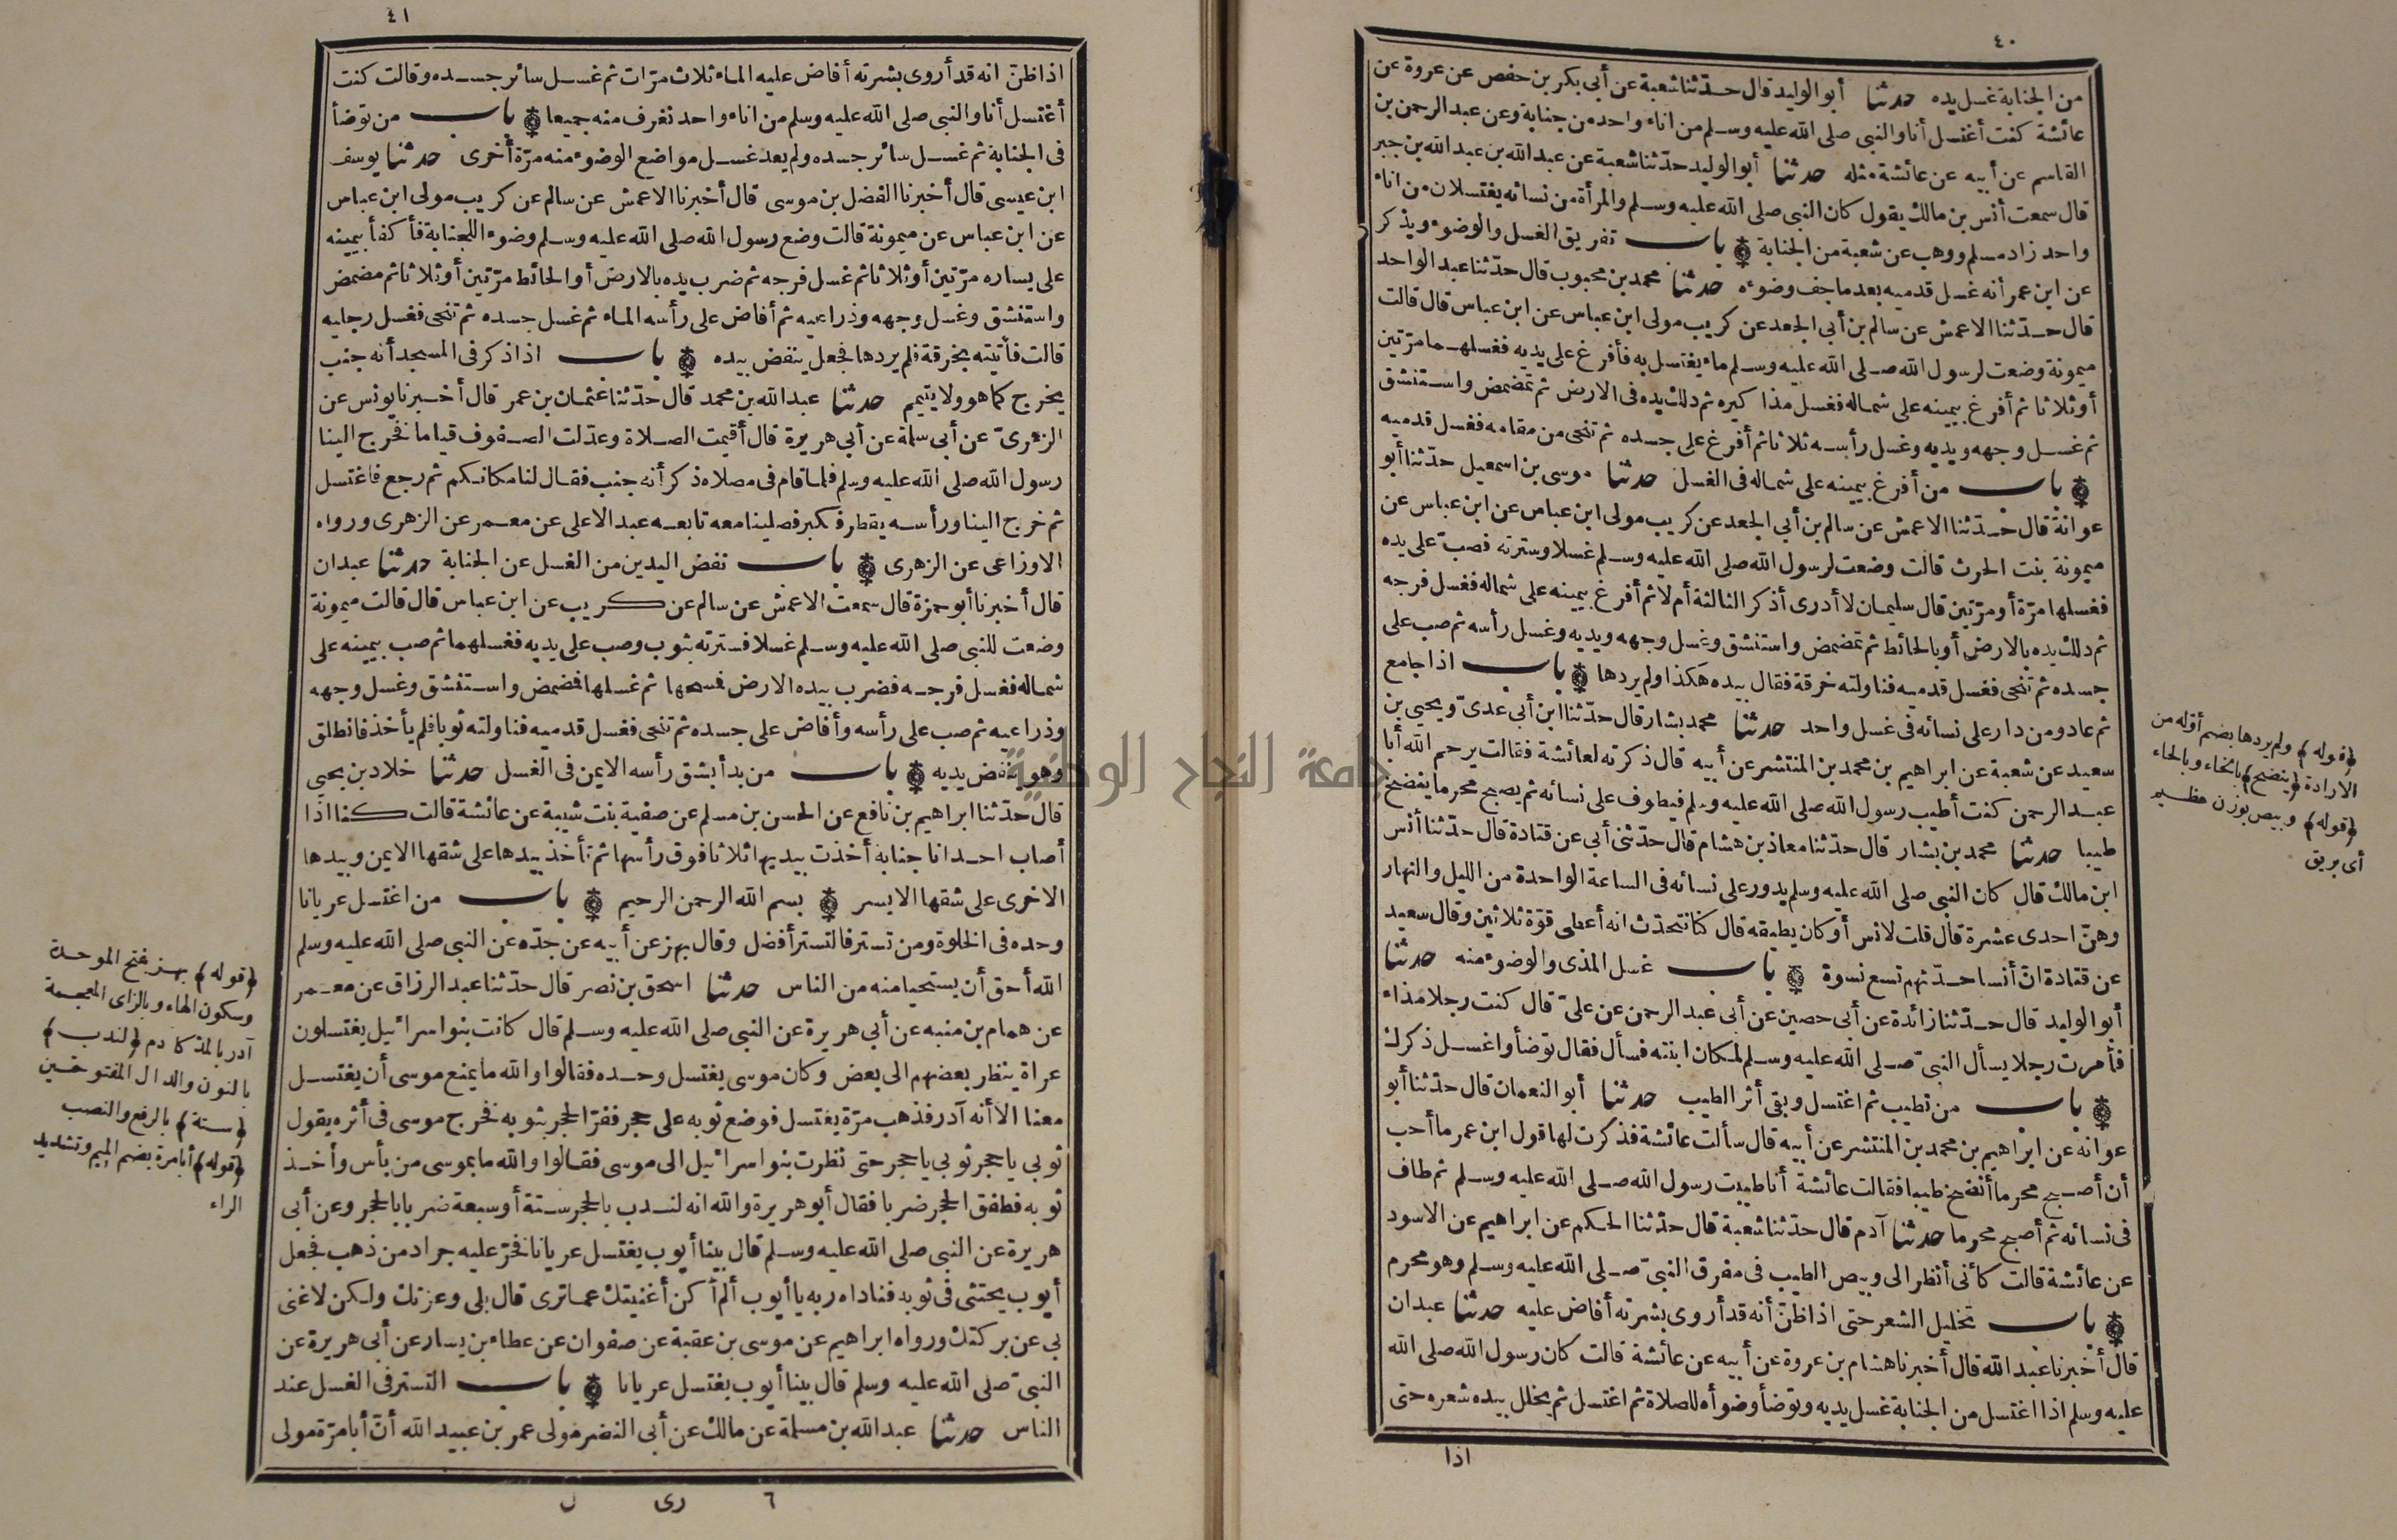 ٤٠
من الجنابة غسل يده حدثنا أبو الوليد قال حدّثنا شعبة عن أبي بكر بن حفص عن عروة عن
عائشة كنت أغتسل أنا والنبي صلى الله عليه وسلم من اناء واحد من جنابة وعن عبد الرحمن بن
القاسم عن أبيه عن عائشة مثله حدثنا أبو الوليد حدّثنا شعبة عن عبد الله بن عبد الله بن جبر
قال سمعت أنس بن مالك يقول كان النبي صلى الله عليه وسلم والمرأة من نسائه يغتسلان من اناء
واحد زاد مسلم ووهب عن شعبة من الجنابة باب تفريق الغسل والوضوء ويذكر
عن ابن عمر أنه غسل قدميه بعد ما جف وضوءه حدثنا محمد بن محبوب قال حدّثنا عبد الواحد
قال حدّثنا الاعمش عن سالم بن أبي الجعد عن كريب مولى ابن عباس عن ابن عباس قال قالت
ميمونة وضعت لرسول الله صلى الله عليه وسلم ماء يغتسل به فأفرغ على يديه فغسلهما مرّتين
أو ثلاثا ثم أفرغ بيمينه على شماله فغسل مذا كيره ثم دلك يده في الارض ثم تمضمض واستنشق
ثم غسل وجهه ويديه وغسل رأسه ثلاثا ثم أفرغ على جسده ثم تنحى من مقامه فغسل قدميه
باب من أفرغ بيمينه على شماله في الغسل حدثنا موسى بن اسمعيل حدّثنا أبو
عوانة قال حدّثنا الاعمش عن سالم بن أبي الجعد عن كريب مولى ابن عباس عن ابن عباس عن
ميمونة بنت الحرث قالت وضعت لرسول الله صلى الله عليه وسلم غسلا وسترته فصبّ على يده
فغسلها مرّة أو مرّتين قال سليمان لا أدرى أذكر الثالثة أم لا ثم أفرغ بيمينه على شماله فغسل فرجه
ثم دلك يده بالارض أو بالحائط ثم تمضمض واستنشق وغسل وجهه ويديه وغسل رأسه ثم صب على
جسده ثم تنحى فغسل قدميه فناولته خرقة فقال بيده هكذا ولم يردها باب اذا جامع
ثم عاد ومن دار على نسائه في غسل واحد حدثنا محمد بن بشار قال حدّثنا ابن أبي عدىّ ويحيى بن
سعيد عن شعبة عن ابراهيم بن محمد بن المنتشر عن أبيه قال ذكرته لعائشة فقالت يرحم الله أبا
عبد الرحمن كنت أطيب رسول الله صلى الله عليه وسلم فيطوف على نسائه ثم يصبح محرما ينضخ
طيبا حدثنا محمد بن بشار قال حدّثنا معاذ بن هشام قال حدّثنى أبي عن قتادة قال حدّثنا أنس
ابن مالك قال كان النبي صلى الله عليه وسلم يدور على نسائه في الساعة الواحدة من الليل والنهار
وهنّ احدى عشرة قال قلت لانس أو كان يطيقه قال كنا نتحدّث انه أعطى قوّة ثلاثين وقال سعيد
عن قتادة انّ أنسا حدّثهم تسع نسوة باب غسل المذى والوضوء منه حدثنا
أبو الوليد قال حدّثنا زائدة عن أبي حصين عن أبي عبد الرحمن عن علىّ قال كنت رجلا مذاء
فأمرت رجلا يسأل النبىّ صلى الله عليه وسلم لمكان ابنته فسأل فقال توضأ واغسل ذكرك
باب من تطيب ثم اغتسل وبقى أثر الطيب حدثنا أبو النعمان قال حدّثنا أبو
عوانة عن ابراهيم بن محمد بن المنتشر عن أبيه قال سألت عائشة فذكرت لها قول ابن عمر ما أحب
أن أصبح محرما أنضخ طيبا فقالت عائشة أنا طيبت رسول الله صلى الله عليه وسلم ثم طاف
في نسائه ثم أصبح محرما حدثنا آدم قال حدّثنا شعبة قال حدّثنا الحكم عن ابراهيم عن الاسود
عن عائشة قالت كأنى أنظر الى وبيص الطيب في مفرق النبىّ صلى الله عليه وسلم وهو محرم
باب تخليل الشعر حتى اذا ظنّ أنه قد أروى بشرته أفاض عليه حدثنا عبدان
قال أخبرنا عبد الله قال أخبرنا هشام بن عروة عن أبيه عن عائشة قالت كان رسول الله صلى الله
عليه وسلم اذا اغتسل من الجنابة غسل يديه وتوضأ وضوأه للصلاة ثم اغتسل ثم يخلل بيده شعره حتى
اذا
﴿قوله﴾ ولم يردها بضم أوّله من
الارادة ﴿ينضح﴾ بالخاء وبالحاء
﴿قوله﴾ وبيص بوزن عظيم
أى بريق
٤١
اذا ظنّ انه قد أروى بشرته أفاض عليه الماء ثلاث مرّات ثم غسل سائر جسده وقالت كنت
أغتسل أنا والنبي صلى الله عليه وسلم من اناء واحد نغرف منه جميعا باب من توضأ
في الجنابة ثم غسل سائر جسده ولم يعد غسل مواضع الوضوء منه مرّة أخرى حدثنا يوسف
ابن عيسى قال أخبرنا الفضل بن موسى قال أخبرنا الاعمش عن سالم عن كريب مولى ابن عباس
عن ابن عباس عن ميمونة قالت وضع رسول الله صلى الله عليه وسلم وضوء اللجنابة فأكفأ بيمينه
على يساره مرّتين أو ثلاثا ثم غسل فرجه ثم ضرب يده بالارض أو الحائط مرّتين أو ثلاثا ثم مضمض
واستنشق وغسل وجهه وذراعيه ثم أفاض على رأسه الماء ثم غسل جسده ثم تنحى فغسل رجليه
قالت فأتيته بخرقة فلم يردها فجعل ينفض بيده باب اذا ذكر في المسجد أنه جنب
يخرج كما هو ولا يتيمم حدثنا عبد الله بن محمد قال حدّثنا عثمان بن عمر قال أخبرنا يونس عن
الزهرىّ عن أبي سلمة عن أبي هريرة قال أقيمت الصلاة وعدّلت الصفوف قياما فخرج الينا
رسول الله صلى الله عليه وسلم فلما قام في مصلاه ذكر أنه جنب فقال لنا مكانكم ثم رجع فاغتسل
ثم خرج الينا ورأسه يقطر فكبر فصلينا معه تابعه عبد الاعلى عن معمر عن الزهرى ورواه
الاوزاعى عن الزهرى باب نفض اليدين من الغسل عن الجنابة حدثنا عبدان
قال أخبرنا أبو حمزة قال سمعت الاعمش عن سالم عن كريب عن ابن عباس قال قالت ميمونة
وضعت للنبى صلى الله عليه وسلم غسلا فسترته بثوب وصب على يديه فغسلهما ثم صب بيمينه على
شماله فغسل فرجه فضرب بيده الارض فمسحها ثم غسلها فمضمض واستنشق وغسل وجهه
وذراعيه ثم صب على رأسه وأفاض على جسده ثم تنحى فغسل قدميه فناولته ثوبا فلم يأخذه فانطلق
وهو ينفض يديه باب من بدأ بشق رأسه الايمن في الغسل حدثنا خلاد بن يحيى
قال حدّثنا ابراهيم بن نافع عن الحسن بن مسلم عن صفية بنت شيبة عن عائشة قالت كنا اذا
أصاب احدانا جنابة أخذت بيديها ثلاثا فوق رأسها ثم تأخذ بيدها على شقها الايمن وبيدها
الاخرى على شقها الايسر بسم الله الرحمن الرحيم باب من اغتسل عريانا
وحده في الخلوة ومن تستر فالتستر أفضل وقال بهز عن أبيه عن جدّه عن النبي صلى الله عليه وسلم
الله أحق أن يستحيا منه من الناس حدثنا اسحق بن نصر قال حدّثنا عبد الرزاق عن معمر
عن همام بن منبه عن أبي هريرة عن النبي صلى الله عليه وسلم قال كانت بنو اسرائيل يغتسلون
عراة ينظر بعضهم الى بعض وكان موسى يغتسل وحده فقالوا والله ما يمنع موسى أن يغتسل
معنا الا أنه آدر فذهب مرّة يغتسل فوضع ثوبه على حجر ففرّ الحجر بثوبه فخرج موسى في أثره يقول
ثوبي يا حجر ثوبي يا حجر حتى نظرت بنو اسرائيل الى موسى فقالوا والله ما بموسى من بأس وأخذ
ثوبه فطفق الحجر ضربا فقال أبو هريرة والله انه لندب بالحجر ستة أو سبعة ضربا بالحجر وعن أبي
هريرة عن النبي صلى الله عليه وسلم قال بينا أيوب يغتسل عريانا فخرّ عليه جراد من ذهب فجعل
أيوب يحتثى في ثوبه فناداه ربه يا أيوب ألم أكن أغنيتك عما ترى قال بلى وعزتك ولكن لا غنى
بي عن بركتك ورواه ابراهيم عن موسى بن عقبة عن صفوان عن عطاء بن يسار عن أبي هريرة عن
النبىّ صلى الله عليه وسلم قال بينا أيوب يغتسل عريانا باب التستر في الغسل عند
الناس حدثنا عبد الله بن مسلمة عن مالك عن أبي النضر مولى عمر بن عبيد الله أنّ أبا مرّة مولى
٦ رى ل
﴿قوله﴾ بهز بفتح الموحدة
وسكون الهاء وبالزاى المعجمة
آدر بالمد كآدم ﴿لندب﴾
بالنون والدال المفتوحتين
﴿ستة﴾ بالرفع والنصب
﴿قوله﴾ أبا مرة بضم الميم وتشديد
الراء
جامعة النجاح الوطنية